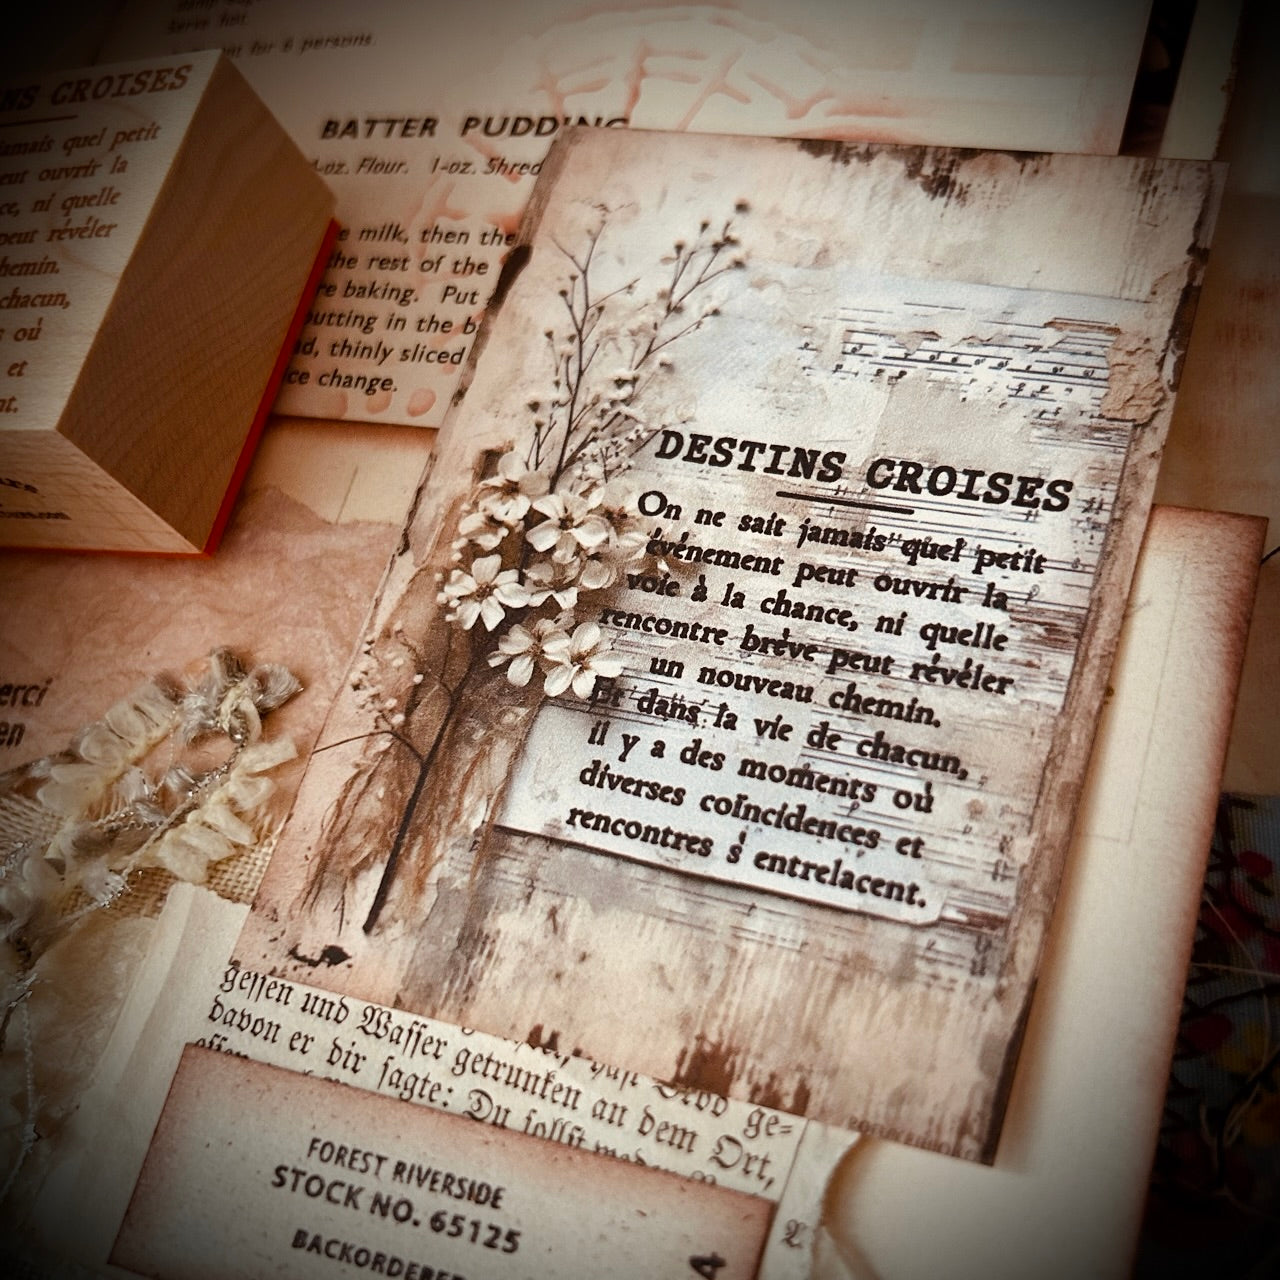 Serve hot.
for 6 persons.
BATTER PUDDING
1-oz. Shred
e milk, then the
the rest of the
re baking. Put
utting in the b
d, thinly sliced
ce change.
NS CROISES
jamais quel petit
eut ouvrir la
ce, ni quelle
peut révéler
chemin.
chacun,
s où
et
nt.
DESTINS CROISES
On ne sait jamais quel petit
événement peut ouvrir la
voie à la chance, ni quelle
rencontre brève peut révéler
un nouveau chemin.
Et dans la vie de chacun,
il y a des moments où
diverses coïncidences et
rencontres s'entrelacent.
erci
en
geſſen und Waſſer getrunken an dem Ort,
davon er dir ſagte: Du ſollſt
FOREST RIVERSIDE
STOCK NO. 65125
BACKORDERED
4